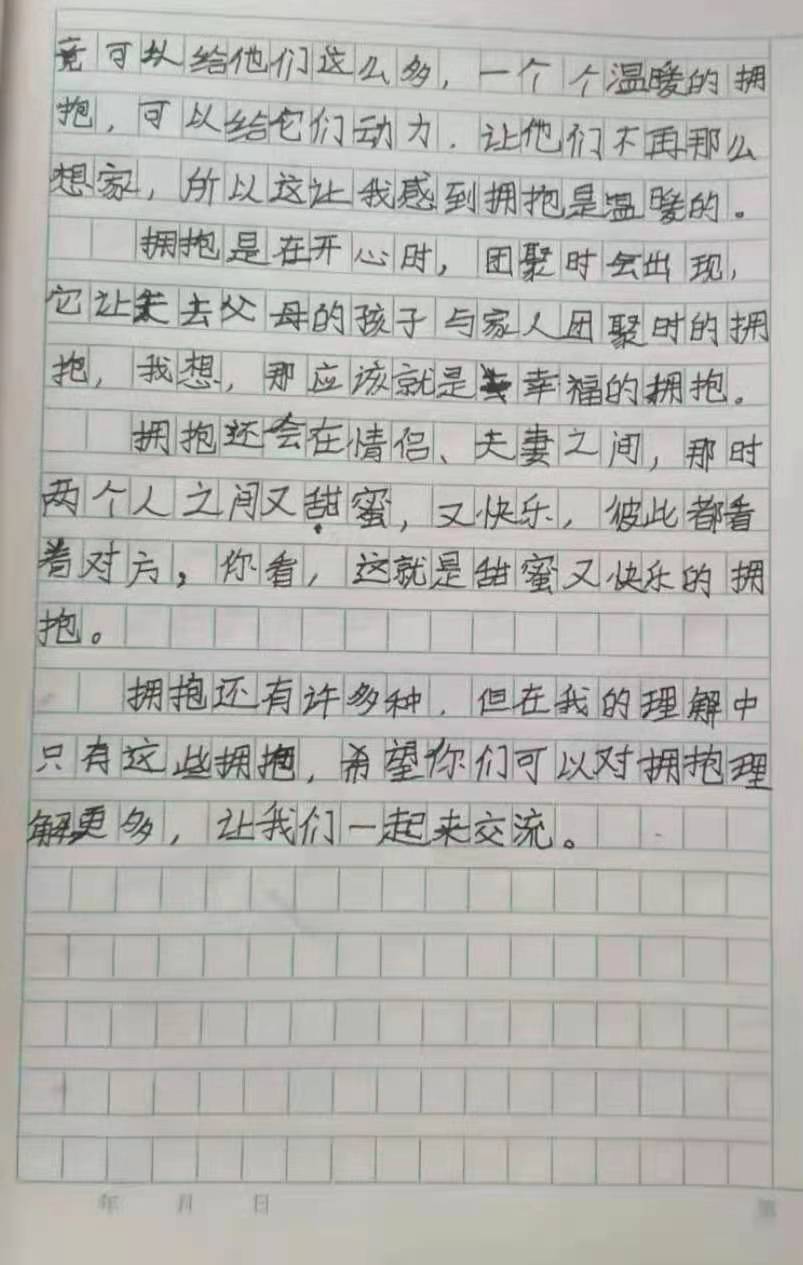 竟可以给他们这么多，一个个温暖的拥
抱，可以给它们动力，让他们不再那么
想家，所以这让我感到拥抱是温暖的。
拥抱是在开心时，团聚时会出现，
它让失去父母的孩子与家人团聚时的拥
抱，我想，那应该就是幸福的拥抱。
拥抱还会在情侣、夫妻之间，那时
两个人之间又甜蜜，又快乐，彼此都看
着对方，你看，这就是甜蜜又快乐的拥
抱。
拥抱还有许多种，但在我的理解中
只有这些拥抱，希望你们可以对拥抱理
解更多，让我们一起来交流。
年 月 日
第